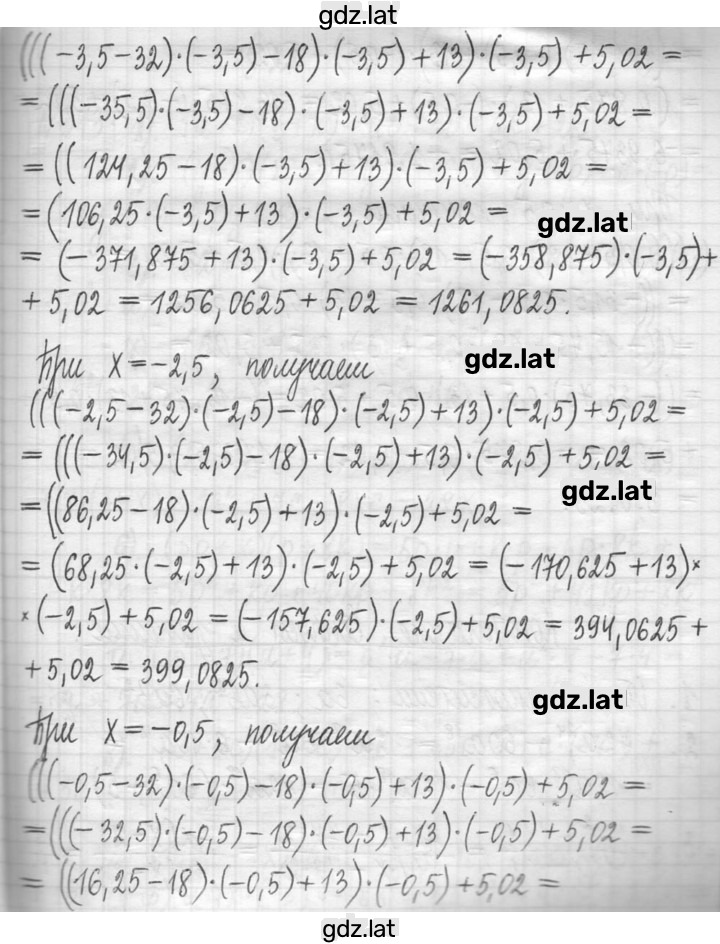 gdz.lat
(((-3,5-32)·(-3,5)-18)·(-3,5)+13)·(-3,5)+5,02=
=(((-35,5)·(-3,5)-18)·(-3,5)+13)·(-3,5)+5,02=
=((124,25-18)·(-3,5)+13)·(-3,5)+5,02=
=(106,25·(-3,5)+13)·(-3,5)+5,02=
gdz.lat
=(-371,875+13)·(-3,5)+5,02=(-358,875)·(-3,5)+
+5,02=1256,0625+5,02=1261,0825.
При x=-2,5, получаем
gdz.lat
(((-2,5-32)·(-2,5)-18)·(-2,5)+13)·(-2,5)+5,02=
=(((-34,5)·(-2,5)-18)·(-2,5)+13)·(-2,5)+5,02=
gdz.lat
=((86,25-18)·(-2,5)+13)·(-2,5)+5,02=
=(68,25·(-2,5)+13)·(-2,5)+5,02=(-170,625+13)×
×(-2,5)+5,02=(-157,625)·(-2,5)+5,02=394,0625+
+5,02=399,0825.
gdz.lat
При x=-0,5, получаем
(((-0,5-32)·(-0,5)-18)·(-0,5)+13)·(-0,5)+5,02=
=(((-32,5)·(-0,5)-18)·(-0,5)+13)·(-0,5)+5,02=
=((16,25-18)·(-0,5)+13)·(-0,5)+5,02=
gdz.lat